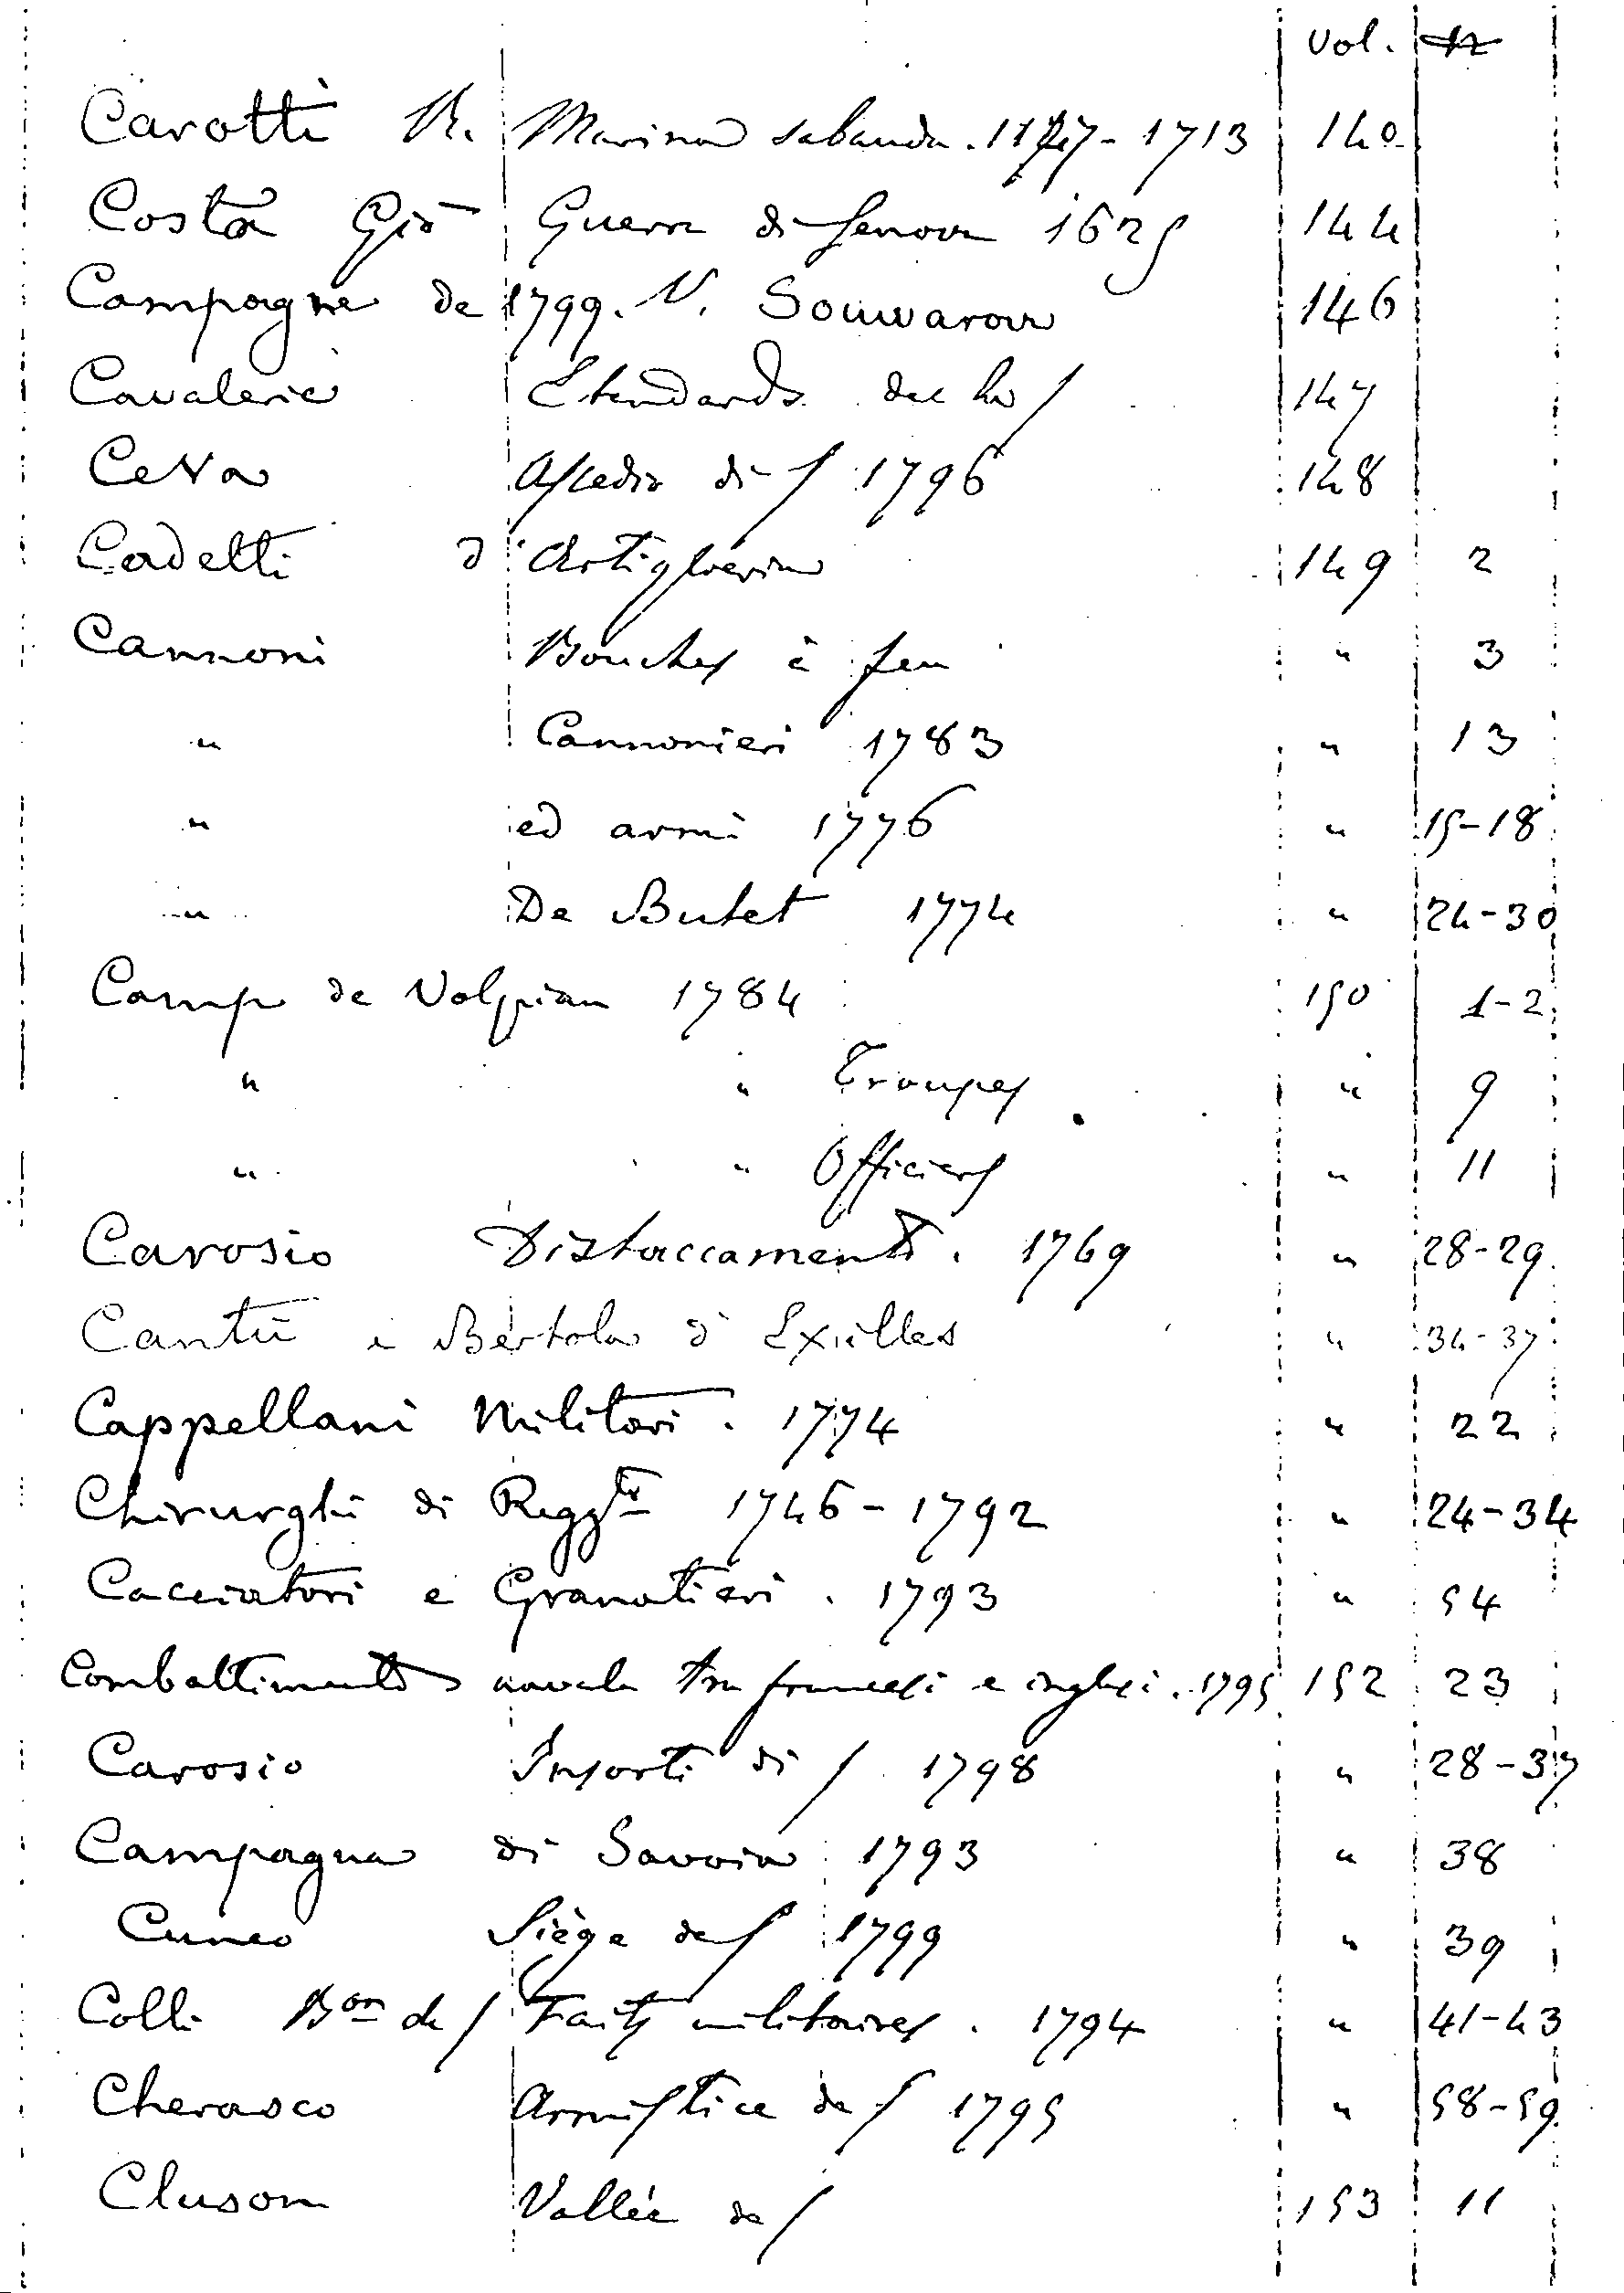 vol. n
Carotti R. Marina sabauda. - 1713 140
Costa Gio Guerra di Genova 1625 144
Campagne de 1799. V. Souwarow 146
Cavalerie Etendards de la / 147
Ceva Assedio di / 1796 148
Cadetti d'Artiglieria 149 2
Cannoni Bouches à feu " 3
" Cannonieri 1783 " 13
" ed armi 1776 " 15-18
" De Butet 1774 " 24-30
Camp de Volpian 1784 150 1-2
" " Troupes " 9
" " Officiers " 11
Carosio Distaccamento. 1769 " 28-29
Cantù e Bertola d'Exilles " 34-37
Cappellani Militari. 1774 " 22
Chirurghi di Regg.ti 1746-1792 " 24-34
Cacciatori e Granatieri. 1793 " 54
Combattimento navale tra francesi e inglesi. 1795 152 23
Carosio Insorti di / 1798 " 28-37
Campagna di Savoia 1793 " 38
Cuneo Siège de / 1799 " 39
Colli Bon de / Faits militaires. 1794 " 41-43
Cherasco Armistice de / 1795 " 58-59
Cluson Vallée de / 153 11